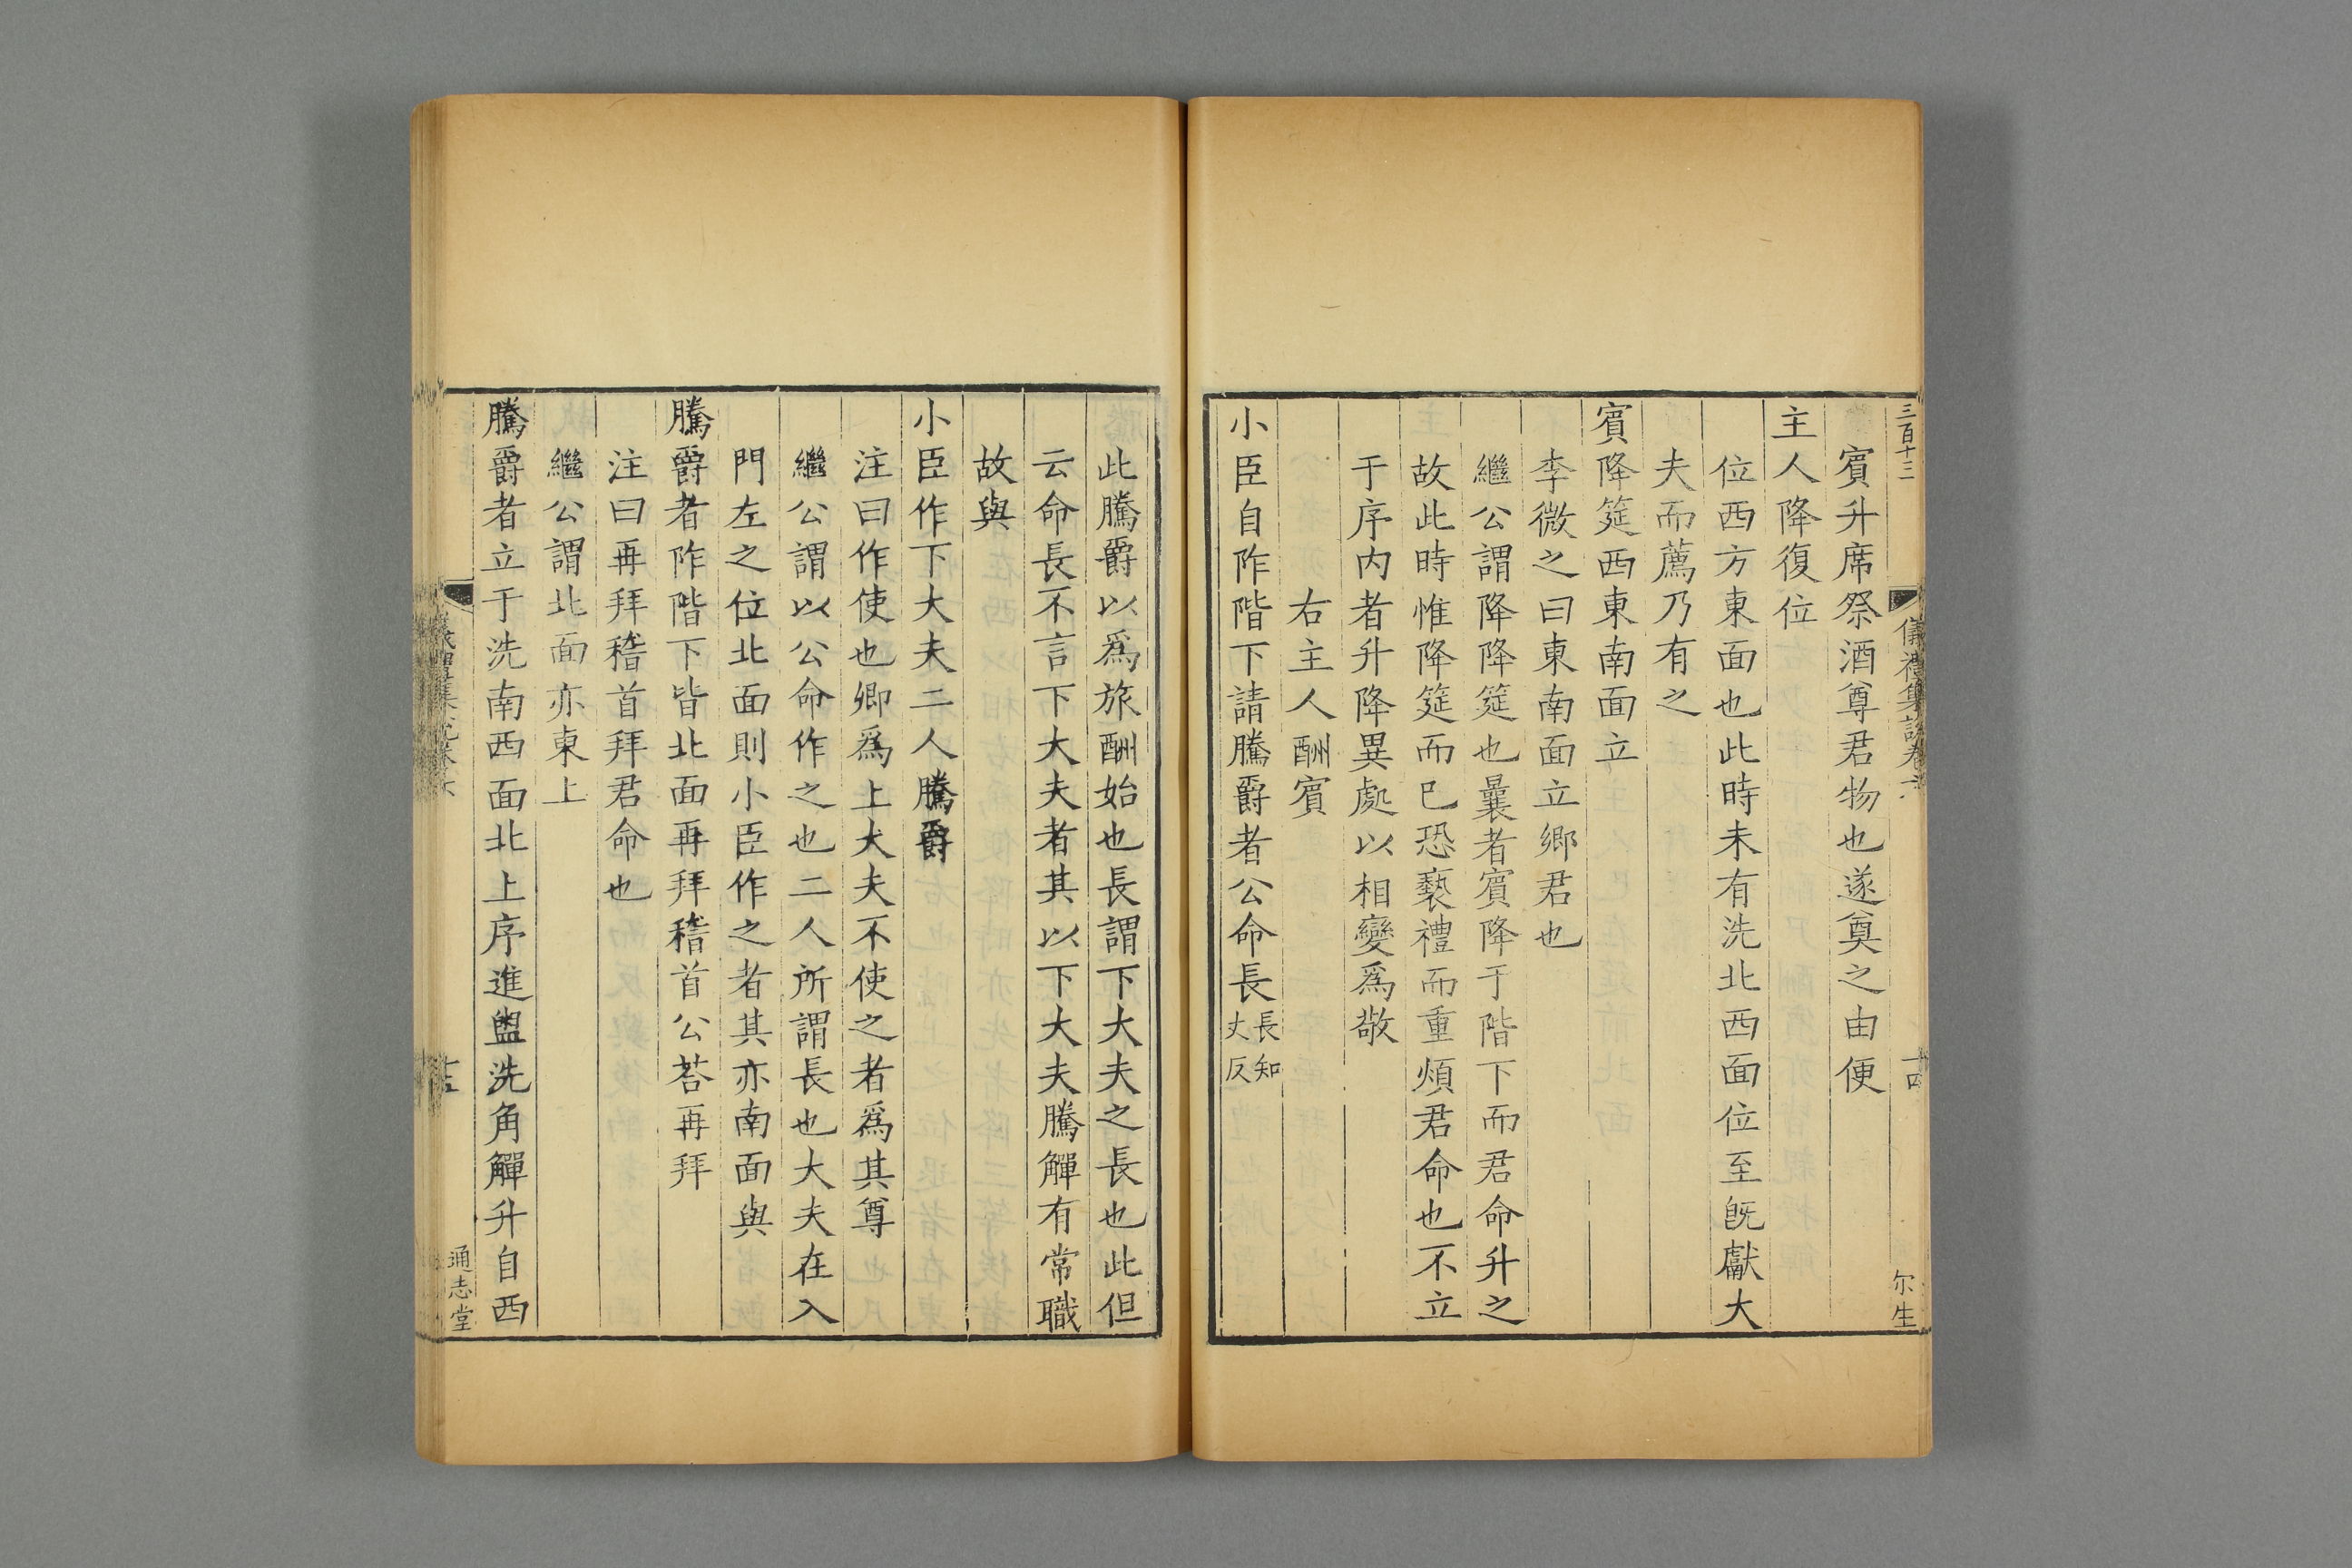 三百十三
儀禮集說卷六
十四
尔生
賓升席祭酒尊君物也遂奠之由便
主人降復位
位西方東面也此時未有洗北西面位至旣獻大
夫而薦乃有之
賓降筵西東南面立
李微之曰東南面立鄉君也
繼公謂降降筵也曩者賓降于階下而君命升之
故此時惟降筵而已恐褻禮而重煩君命也不立
于序内者升降異處以相變爲敬
右主人酬賓
小臣自阼階下請騰爵者公命長長知丈反
此騰爵以爲旅酬始也長謂下大夫之長也此但
云命長不言下大夫者其以下大夫騰觶有常職
故與
小臣作下大夫二人騰爵
注曰作使也卿爲上大夫不使之者爲其尊
繼公謂以公命作之也二人所謂長也大夫在入
門左之位北面則小臣作之者其亦南面與
騰爵者阼階下皆北面再拜稽首公荅再拜
注曰再拜稽首拜君命也
繼公謂北面亦東上
騰爵者立于洗南西面北上序進盥洗角觶升自西
十五
通志堂